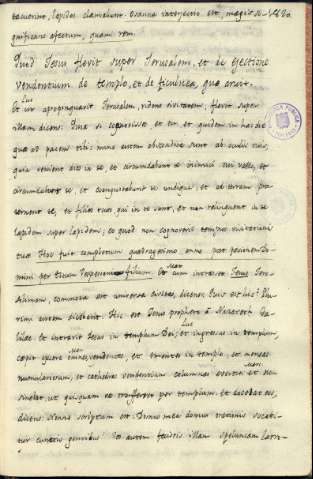 tacuerint, lapides clamabunt. Osanna interjectio est, magis si-
gnificans affectum, quam rem.
Quid Jesus flevit super Jerusalem, et de ejectione
vendentium de templo, et de ficulnea, quæ aruit.
Luc
Et ut appropinquavit Jerusalem, videns civitatem, flevit super
illam dicens: Quia si cognovisses, et tu, et quidem in hac die
quæ ad pacem tibi: nunc autem abscondita sunt ab oculis tuis,
quia venient dies in te, et circumdabunt te inimici tui vallo, et
circumdabunt te, et coangustabunt te undique, et ad terram pro-
sternent te, et filios tuos, qui in te sunt, et non relinquent in te
lapidem super lapidem; eo quod non cognoveris tempus visitationis
tuæ. Hæc fuit completum quadragesimo anno post passionem Do-
mini per Titum Vespasiani filium. Et cum intrasset Jesus Jero-
Mat
solimam, commota est universa civitas, dicens: Quis est hic?
dicebant: Hic est Jesus propheta a Nazareth Ga-
lileæ. Et intravit Jesus in templum Dei; et ingressus in templum,
Luc
cœpit ejicere vendentes, et ementes in templo, et mensas
numulariorum, et cathedras vendentium columbas evertit et non
Marc
sinebat, ut quisquam vas transferret per templum, et docebat eos,
dicens: Nonne scriptum est: Domus mea domus orationis vocabi-
tur cunctis gentibus? Vos autem fecistis illam speluncam latro-